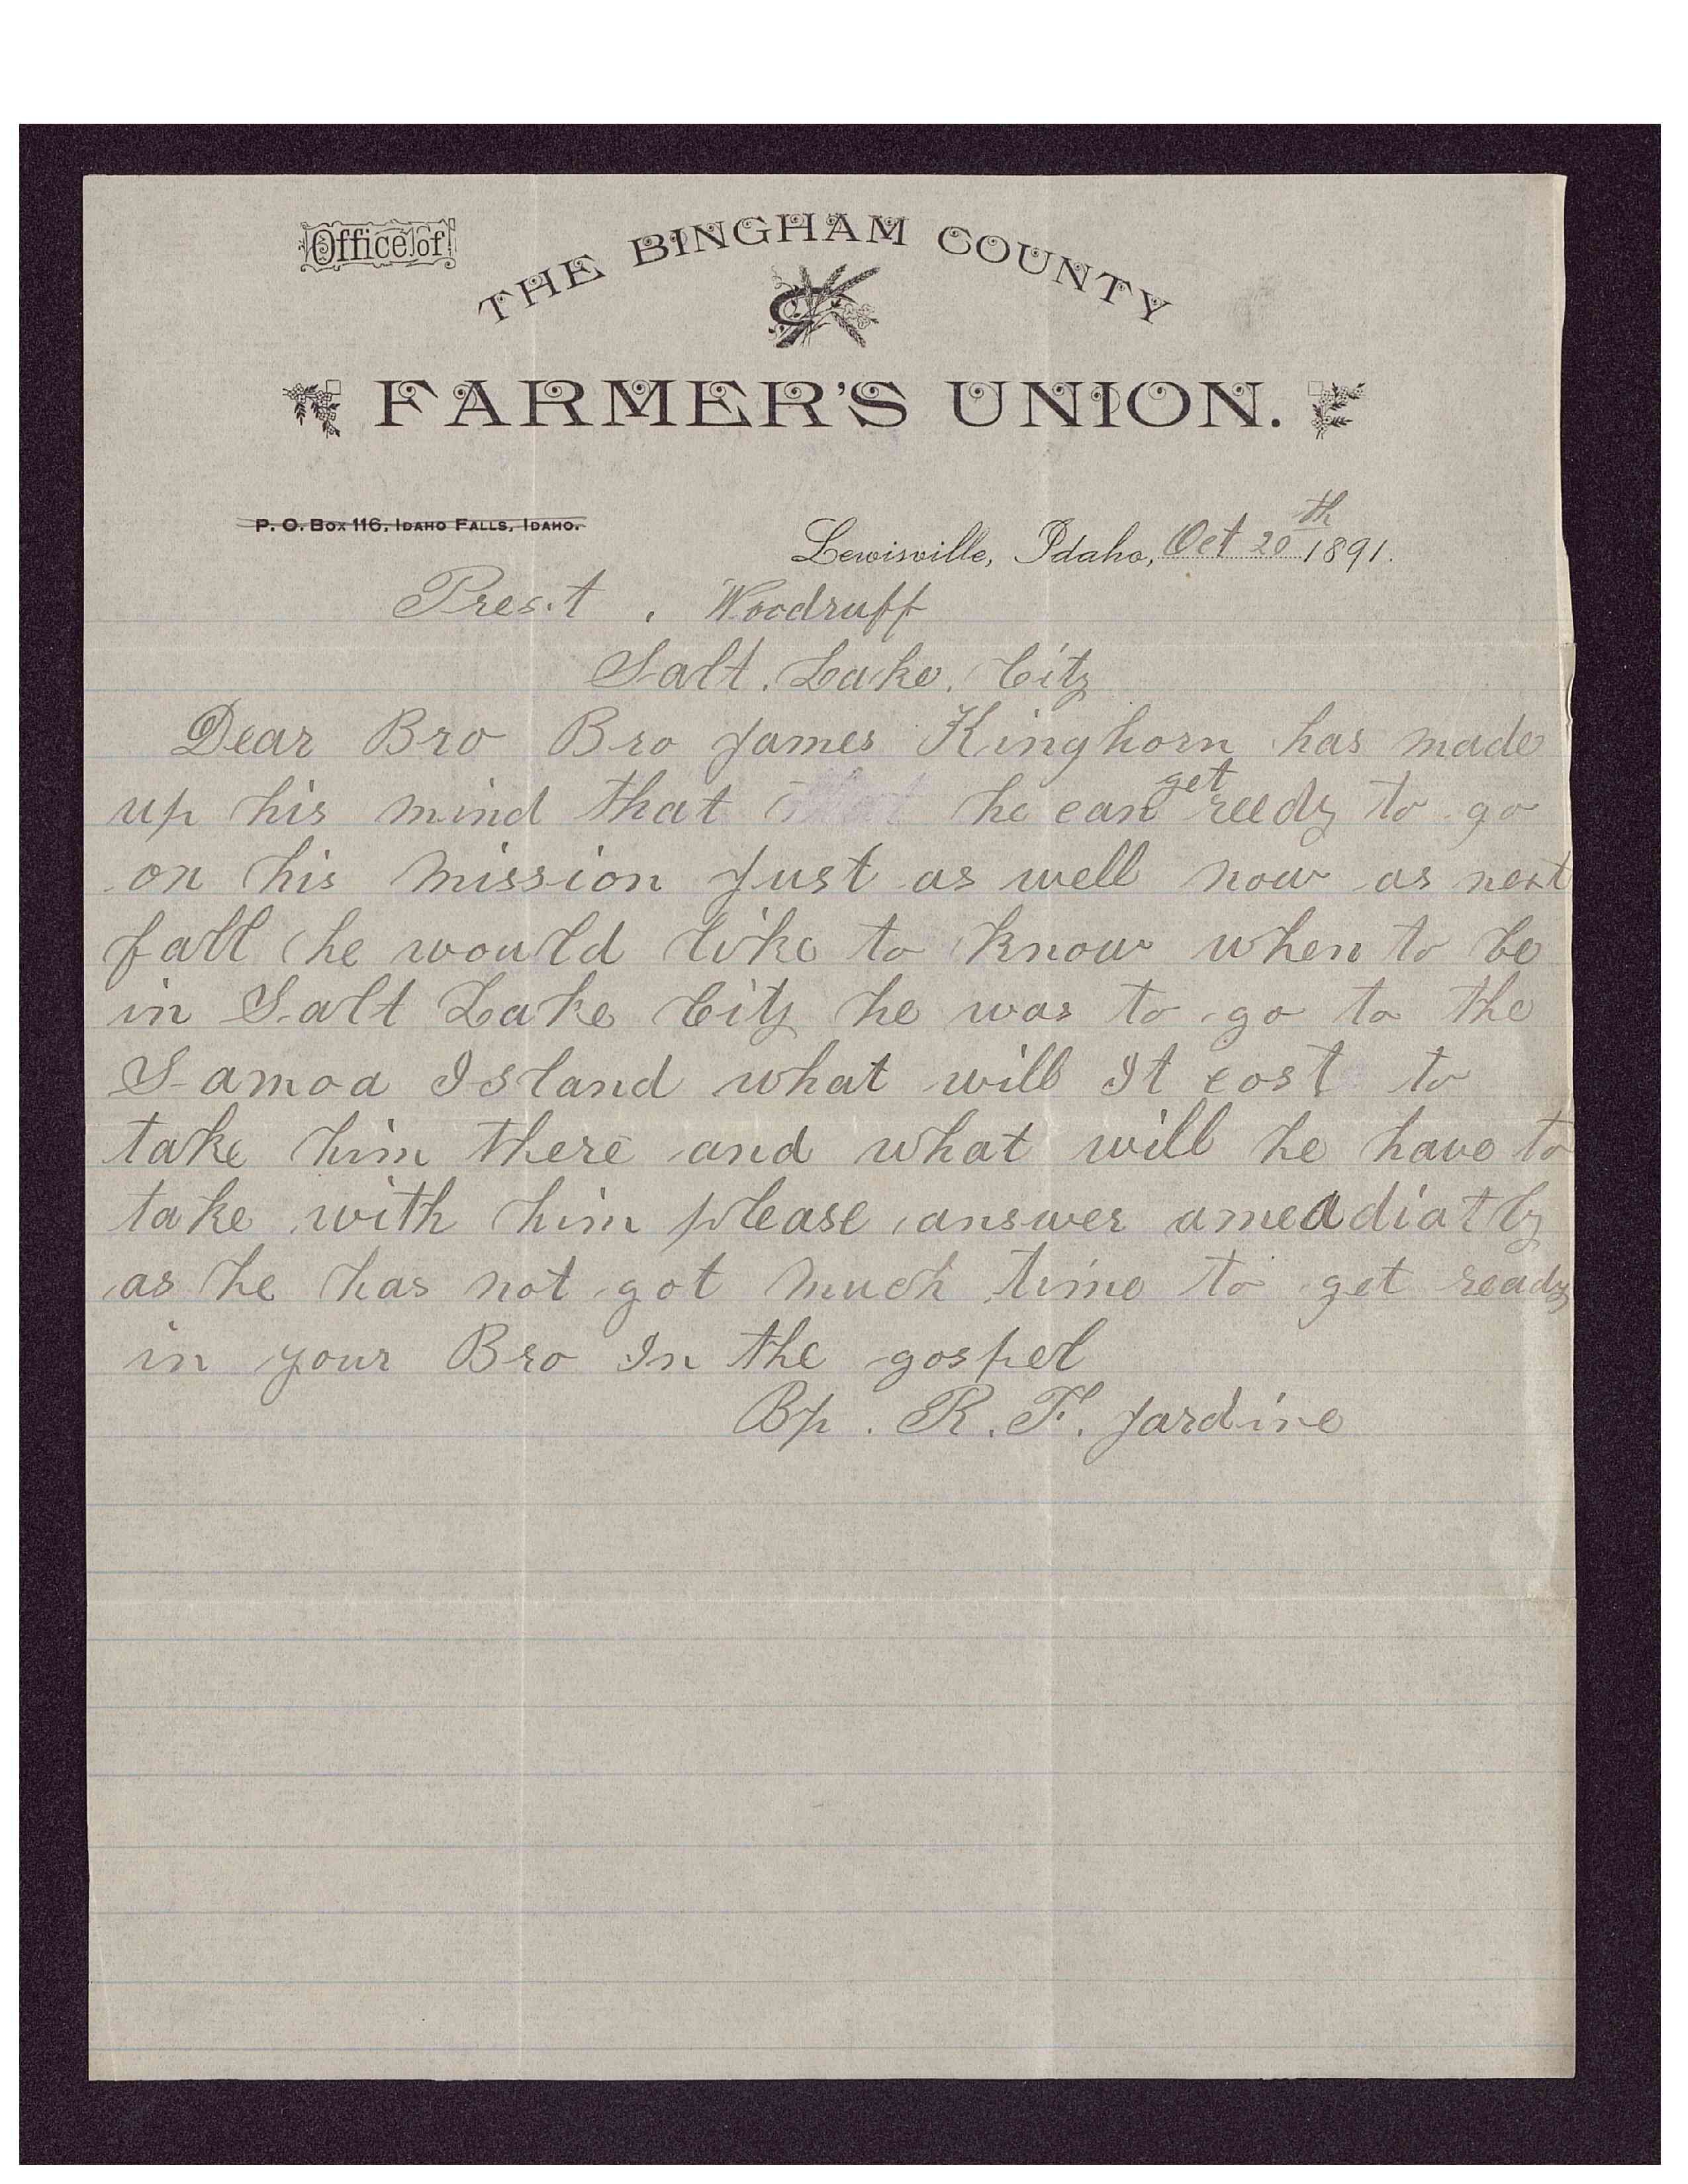 Office of
THE BINGHAM COUNTY
FARMER'S UNION.
P. O. BOX 116, IDAHO FALLS, IDAHO.
Lewisville, Idaho, Oct 20th 1891.
Pres.t . Woodruff
Salt. Lake. City
Dear Bro Bro James Kinghorn has made
up his mind that that he can get reedy to go
on his mission Just as well now as next
fall he would like to know when to be
in Salt Lake City he was to go to the
Samoa Island what will It cost to
take him there and what will he have to
take with him please answer ameadiatly
as he has not got much time to get ready
in your Bro In the gospel
Bp. R. F. Jardine